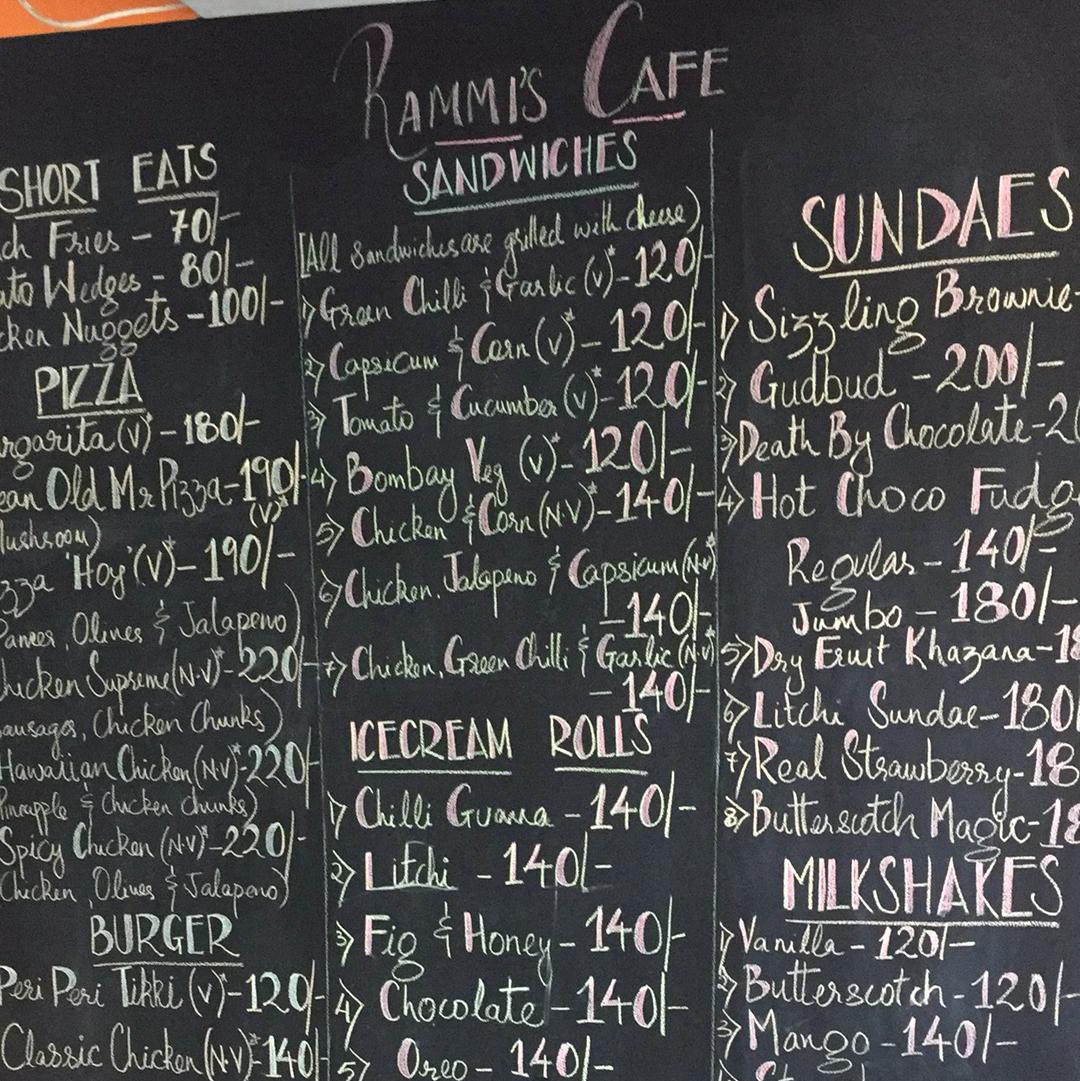 RAMMI'S CAFE
SHORT EATS
ch Fries - 70/-
ato Wedges - 80/-
cken Nuggets - 100/-
PIZZA
rgarita (V)* - 180/-
ean Old Mr Pizza - 190/-
(V)*
Mushroom)
zza 'Hoy' (V)* - 190/-
Paneer, Olives & Jalapeno)
Chicken Supreme (N.V)* - 220/-
Sausages, Chicken Chunks)
Hawaiian Chicken (N.V)* - 220/-
Pineapple & Chicken Chunks)
Spicy Chicken (N.V)* - 220/-
Chicken, Olives & Jalapeno)
BURGER
Peri Peri Tikki (V)* - 120/-
Classic Chicken (N.V)* - 140/-
SANDWICHES
[All Sandwiches are grilled with cheese)
1> Green Chilli & Garlic (V)* - 120/-
2> Capsicum & Corn (V)* - 120/-
3> Tomato & Cucumber (V)* - 120/-
4> Bombay Veg (V)* - 120/-
5> Chicken & Corn (N.V)* - 140/-
6> Chicken, Jalapeno & Capsicum (N.V)*
- 140/-
7> Chicken, Green Chilli & Garlic (N.V)*
- 140/-
ICECREAM ROLLS
1> Chilli Guava - 140/-
2> Litchi - 140/-
3> Fig & Honey - 140/-
4> Chocolate - 140/-
5> Oreo - 140/-
SUNDAES
1> Sizzling Brownie -
2> Gudbud - 200/-
3> Death By Chocolate - 2
4> Hot Choco Fudg
Regular - 140/-
Jumbo - 180/-
5> Dry Fruit Khazana - 18
6> Litchi Sundae - 180/
7> Real Strawberry - 18
8> Butterscotch Magic - 18
MILKSHAKES
1> Vanilla - 120/-
2> Butterscotch - 120/-
3> Mango - 140/-